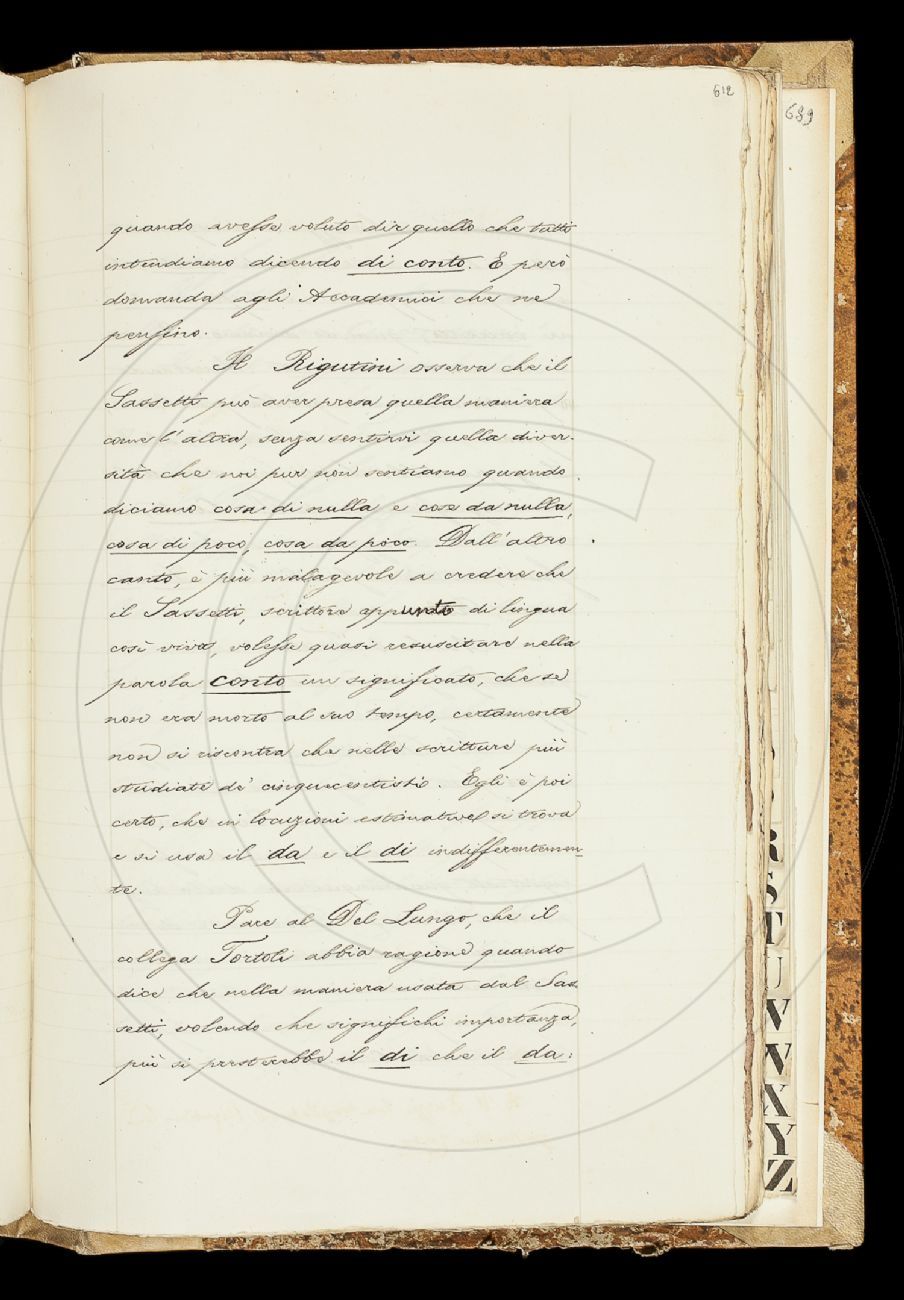 612
689
quando avesse voluto dir quello che tutti
intendiamo dicendo di conto. E però
domanda agli Accademici che ne
pensino.
Il Rigutini osserva che il
Sassetti può aver presa quella maniera
come l'altra, senza sentirvi quella diver-
sità che noi pur non sentiamo quando
diciamo cosa di nulla e cosa da nulla,
cosa di poco, cosa da poco. Dall'altro
canto, è più malagevole a credere che
il Sassetti, scrittore appunto di lingua
così viva, volesse quasi resuscitare nella
parola conto un significato, che se
non era morto al suo tempo, certamente
non si riscontra che nelle scritture più
studiate de' cinquecentisti. Egli è poi
certo, che in locuzioni estimative si trova
e si usa il da e il di indifferentemen-
te.
Pare al Del Lungo, che il
collega Tortoli abbia ragione quando
dice che nella maniera usata dal Sas
setti, volendo che significhi importanza,
più si presterebbe il di che il da:
R
S
T
U
V
W
X
Y
Z